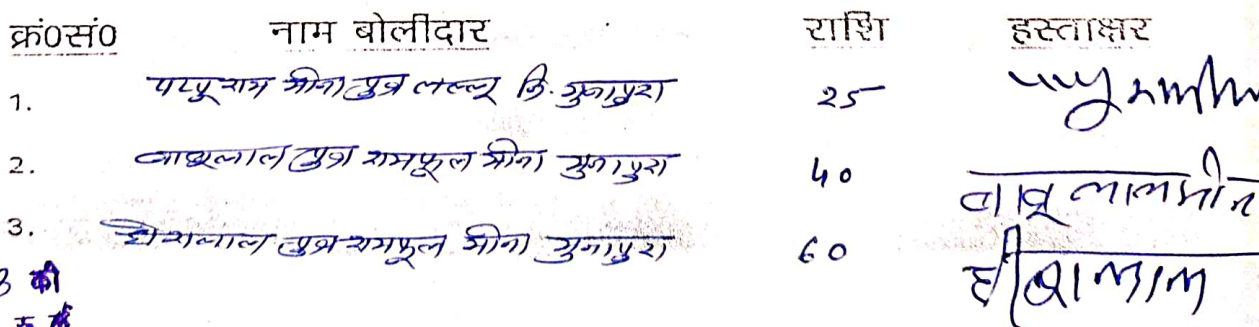 क्रं०सं० नाम बोलीदार राशि हस्ताक्षर
1. पप्पू राम मीना पुत्र लल्लू नि. गुजापुरा 25
2. बाबूलाल पुत्र रामफूल मीना गुजापुरा 40 बाबू लाल मीन
3. हीरालाल पुत्र रामफूल मीना गुजापुरा 60 हीरालाल
3 की